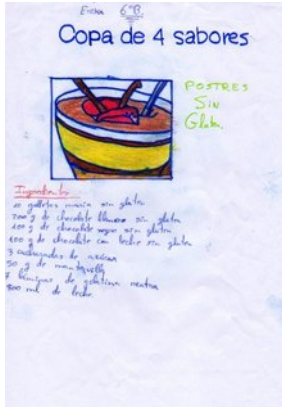 6ºB.
Copa de 4 sabores
POSTRES
Sin
Gluten.
Ingredientes
10 galletas maría sin gluten
200 g de chocolate blanco sin gluten
100 g de chocolate negro sin gluten
100 g de chocolate con leche sin gluten
3 cucharadas de azúcar
50 g de mantequilla
7 láminas de gelatina neutra
800 ml de leche